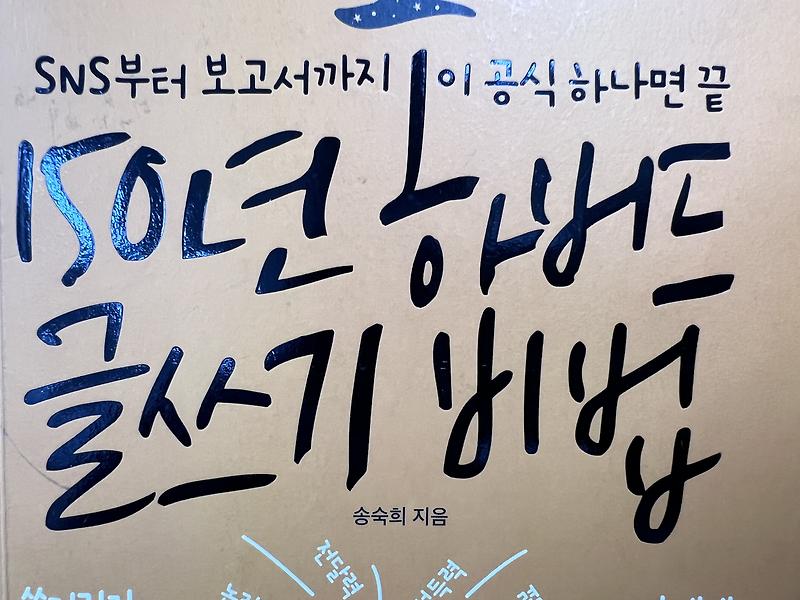 SNS부터 보고서까지 이 공식 하나면 끝
150년 하버드
글쓰기 비법
송숙희 지음
전달력